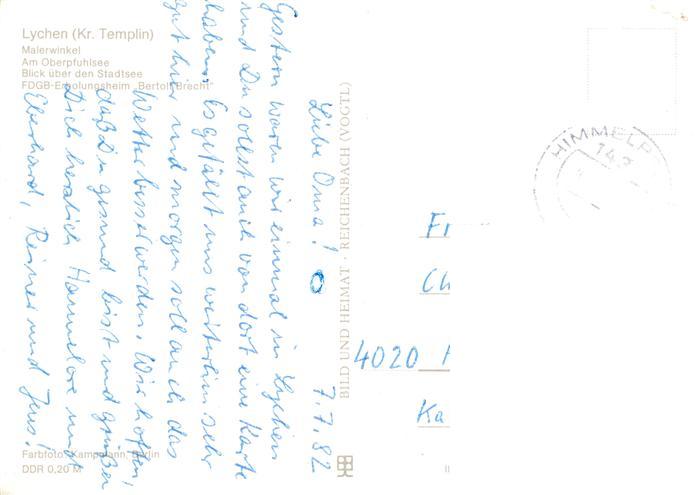 Lychen (Kr. Templin)
Malerwinkel
Am Oberpfuhlsee
Blick über den Stadtsee
FDGB-Erholungsheim „Bertolt Brecht"
7.7.82
Liebe Oma!
Gestern waren wir einmal in Lychen
und Du sollst auch von dort eine Karte
haben. Es gefällt uns weiterhin sehr
gut hier und morgen soll auch das
Wetter besser werden. Wir hoffen,
daß Du gesund bist und grüßen
Dich herzlich Hannelore und
Eberhard, Reiner und Jens!
Farbfoto: Kampmann, Berlin
DDR 0,20 M
BILD UND HEIMAT · REICHENBACH (VOGTL)
HIMMELP
14.7
Fr
Ch
4020
Ka